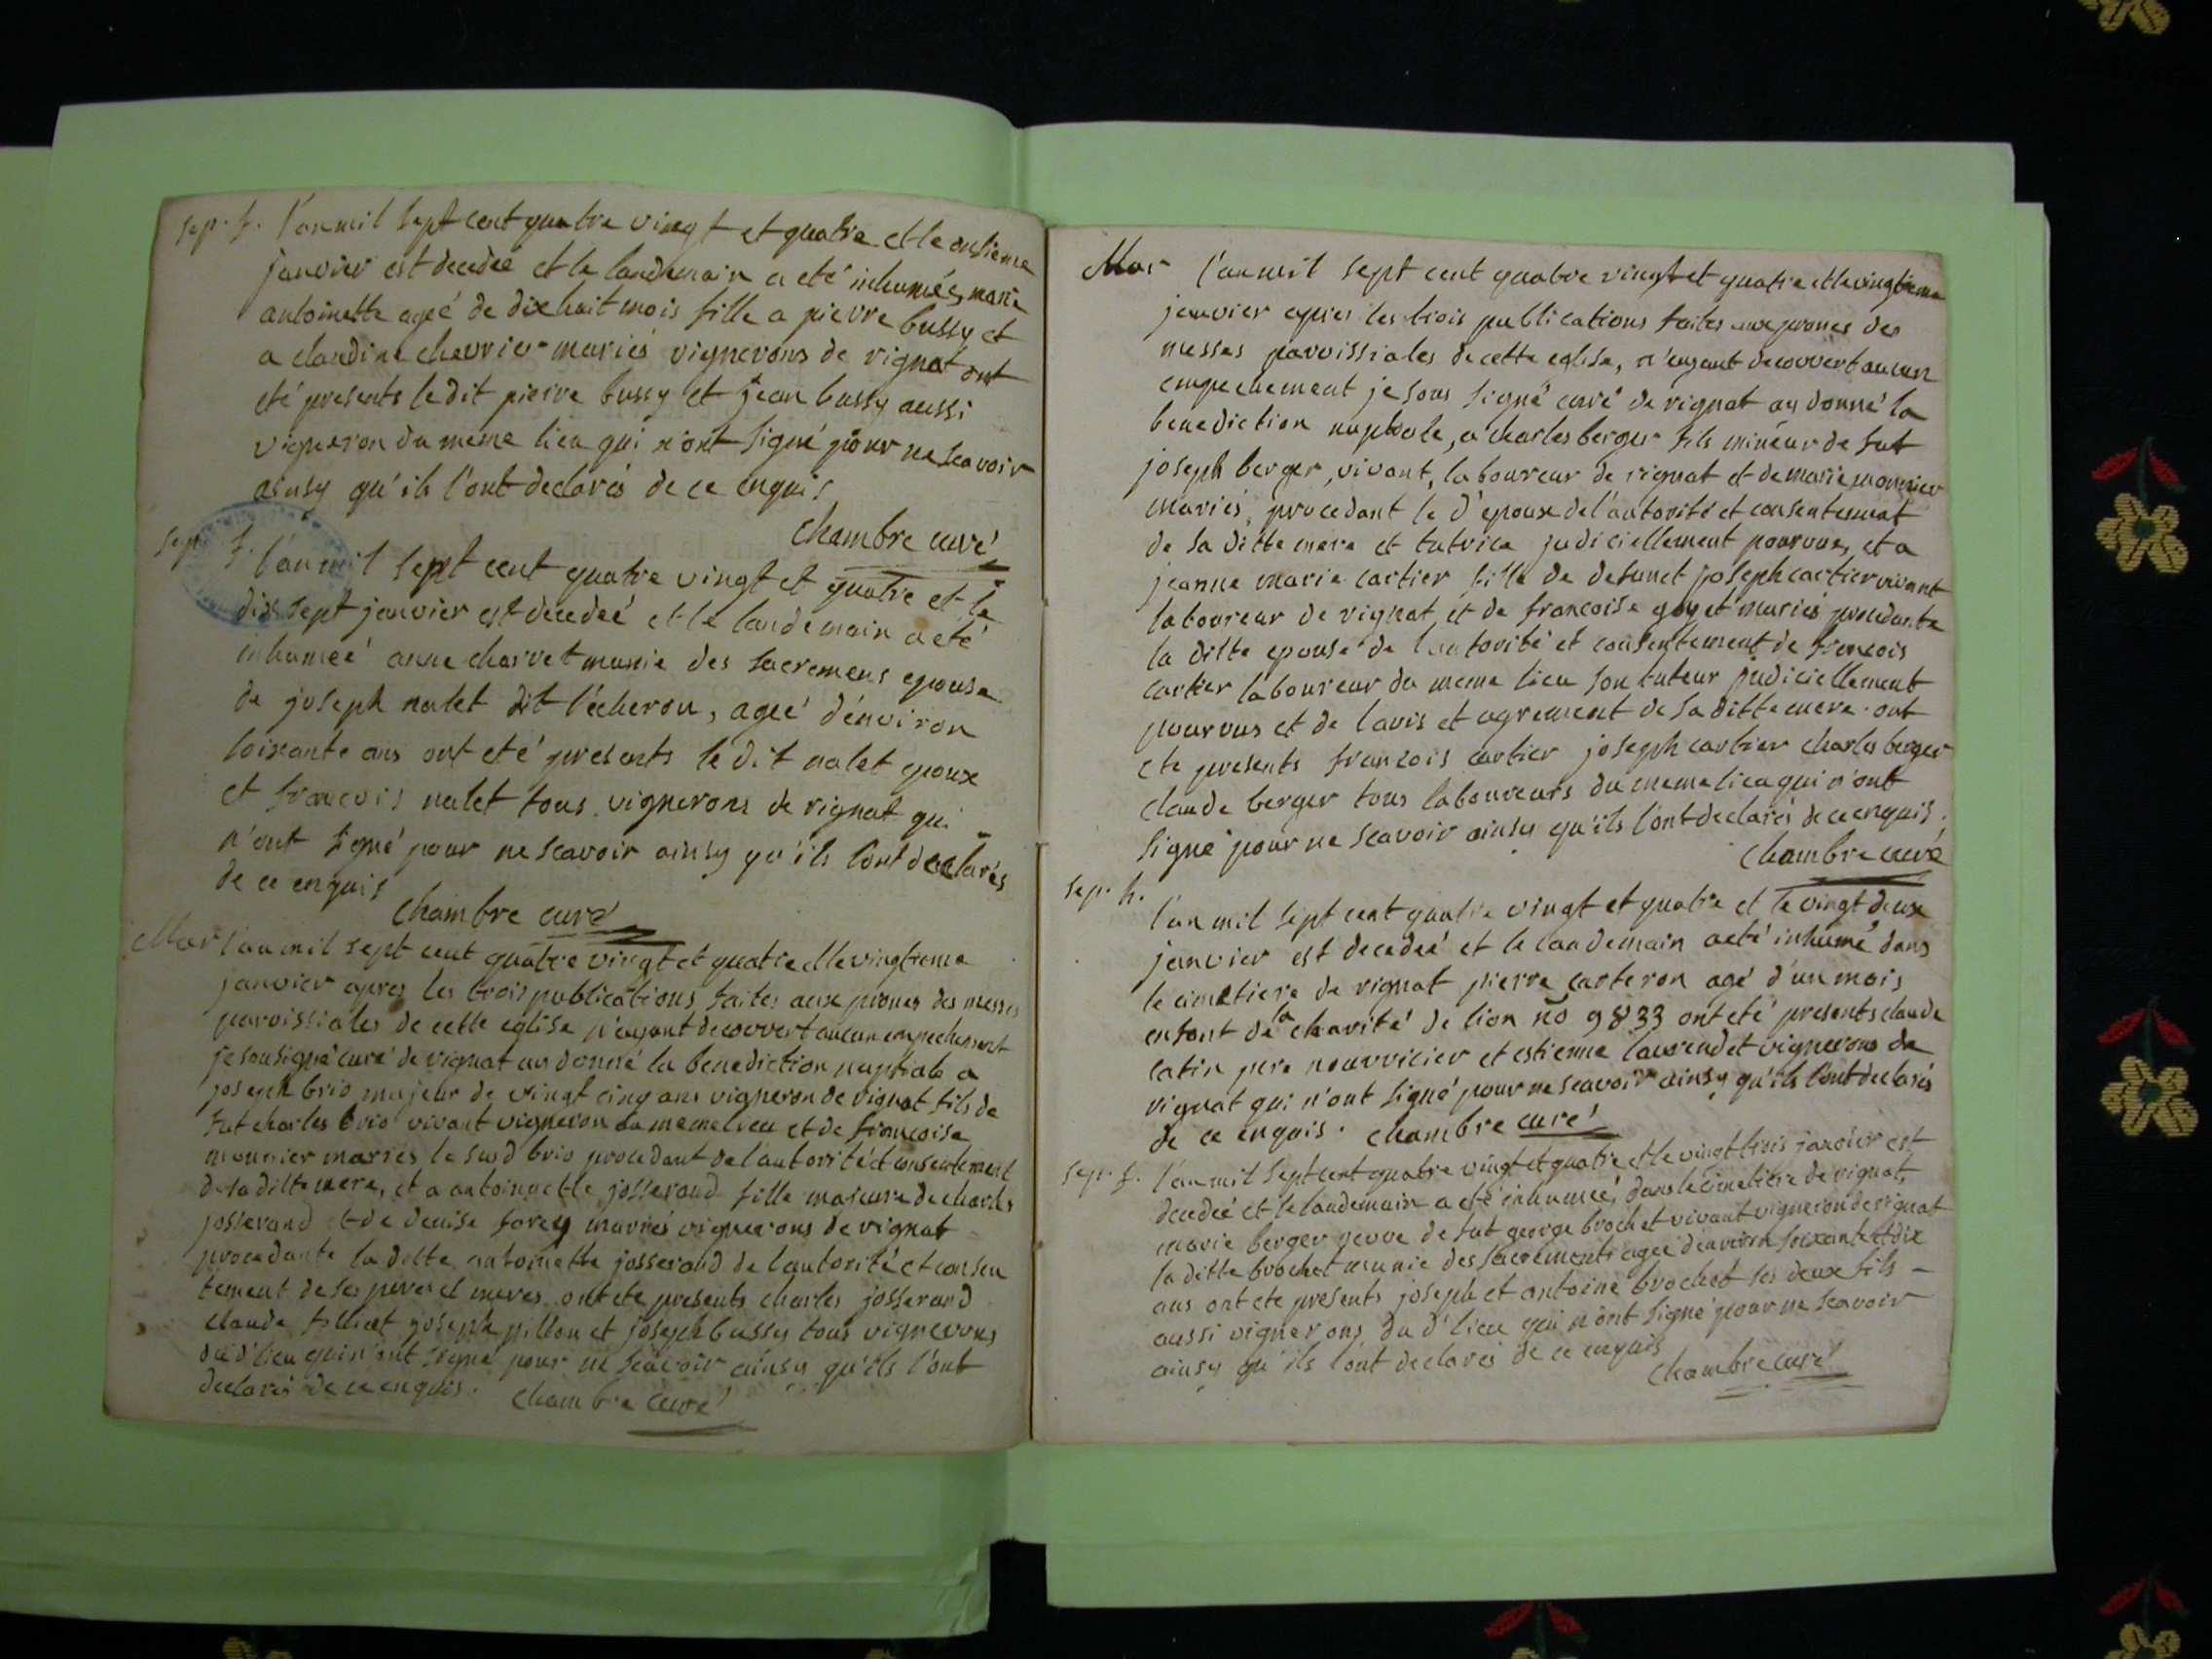 sep. f. l'an mil sept cent quatre vingt et quatre et le onsieme
janvier est decedeé et le landemain a eté inhumeé, marie
antoinette ageé de dixhuit mois fille a pierre bussy et
a claudine chevrier mariés vignerons de rignat ont
eté presents le dit pierre bussy et jean bussy aussi
vigneron du meme lieu qui n'ont signé pour ne scavoir
ainsy qu'ils l'ont declarés de ce enquis
chambre curé
sep. f. l'an mil sept cent quatre vingt et quatre et le
dix sept janvier est decedeé et le landemain a eté
inhumeé anne charvet munie des sacremens epouse
de joseph nalet dit l'écheron, ageé d'environ
soixante ans ont eté presents le dit nalet epoux
et francois nalet tous vignerons de rignat qui
n'ont signé pour ne scavoir ainsy qu'ils l'ont declarés
de ce enquis
chambre curé
Mar l'an mil sept cent quatre vingt et quatre et le vingtieme
janvier apres les trois publications faites aux prones des messes
paroissiales de cette eglise n'ayant decouvert aucun empechement
je sousigné curé de rignat ay donné la benediction nuptiale a
joseph brio majeur de vingt cinq ans vigneron de rignat fils de
fut charles brio vivant vigneron du meme lieu et de francoise
mounier mariés le susd brio procedant de l'autorité et consentement
de sa ditte mere, et a antoinette josserand fille majeure de charles
josserand et de denise forey mariés vignerons de rignat
procedante la ditte antoinette josserand de l'autorité et consen
tement de ses peres et meres ont ete presents charles josserand
claude joseph pillon et joseph bussy tous vignerons
du d' lieu qui n'ont signé pour ne scavoir ainsy qu'ils l'ont
declarés de ce enquis. chambre curé
Mar l'an mil sept cent quatre vingt et quatre et le vingtieme
janvier apres les trois publications faites aux prones des
messes paroissiales de cette eglise, n'ayant decouvert aucun
empechement je sous signé curé de rignat ay donné la
benediction nuptiale, a charles berger fils mineur de fut
joseph berger, vivant, laboureur de rignat et de marie mounier
mariés, procedant le d' epoux de l'autorité et consentement
de sa ditte mere et tutrice judiciellement pourvue, et a
jeanne marie cartier fille de defunct joseph cartier vivant
laboureur de rignat, et de francoise goyet mariés procedante
la ditte epouse de l'autorité et consentement de francois
cartier laboureur du meme lieu son tuteur judiciellement
pourvus et de l'avis et agrement de sa ditte mere. ont
ete presents francois cartier joseph cartier charles berger
claude berger tous laboureurs du meme lieu qui n'ont
signé pour ne scavoir ainsy qu'ils l'ont declarés de ce enquis.
chambre curé
sep. h.
l'an mil sept cent quatre vingt et quatre et le vingt deux
janvier est decedeé et le landemain a eté inhumé dans
le cimetiere de rignat pierre carteron agé d'un mois
enfant de la charité de lion no 9833 ont eté presents claude
catin pere nourricier et estienne laurendet vignerons de
rignat qui n'ont signé pour ne scavoir ainsy qu'ils l'ont declarés
de ce enquis. chambre curé
sep. f. l'an mil sept cent quatre vingt et quatre et le vingt trois janvier est
decedeé et le landemain a eté inhumeé, dans le cimetiere de rignat,
marie berger veuve de fut george brochet vivant vigneron de rignat
la ditte brochet munie des sacrements ageé d'environ soixante et dix
ans ont ete presents joseph et antoine brochet ses deux fils
aussi vignerons du d' lieu qui n'ont signé pour ne scavoir
ainsy qu'ils l'ont declarés de ce enquis
chambre curé